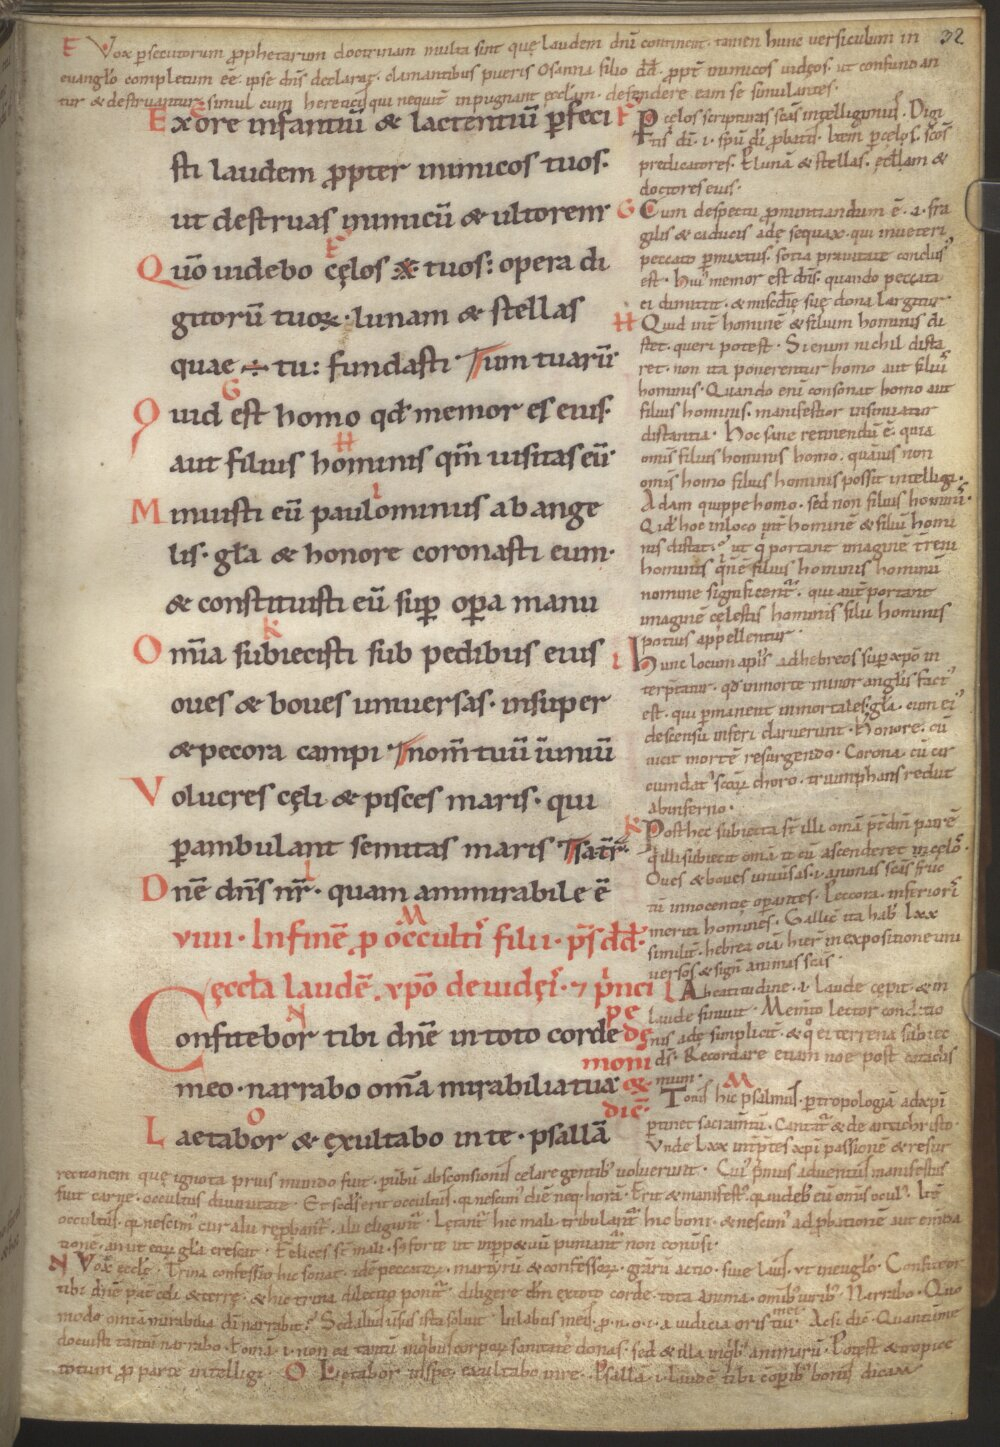 32
E Vox persecutorum prophetarum doctrinam multa sint quę laudem dnī continent. tamen hunc versiculum in
euanglo completum eē. ipse dnīs declarat. clamantibus pueris Osanna filio dd. propt inimicos uidęos. ut confundan
tur & destruantur simul cum hereticis qui nequit inpugnant eccłam. defendere eam se simulantes.
Ex ore infantiū & lactentiū pfeci
sti laudem ppter inimicos tuos.
ut destruas inimicū & ultorem
Quō uidebo cęlos tuos: opera di
gitorū tuoꝝ. lunam & stellas
quae ÷ tu: fundasti Tum tuarū
Quid est homo qd memor es eius.
aut filius hominis qm̄ uisitas eū.
Minuisti eū paulominus ab ange
lis. gła & honore coronasti eum.
& constituisti eū sup opa manu
Omīa subiecisti sub pedibus eius
oues & boues uniuersas. insuper
& pecora campi Tnom̄ tuū īuniū
Volucres cęli & pisces maris. qui
pambulant semitas maris
Dnē dn̄s nr̄. quam ammirabile ē
VIIII. In finē p occulti filii. ps dd.
ęccła laudē. xpō de iudęi. ⁊ pnci
pe
Confitebor tibi dnē in toto corde
dę
moni
meo. narrabo om̄a mirabilia tua
ex
diē.
Laetabor & exultabo in te. psallā
F P celos scripturas scās intelligimus. Digi
tis dī. i. spū dī pbatis. Item p cęlos. scōs
predicatores. P lunā & stellas. ęccłam &
doctores eius.
G Cum despectu pronuntiandum ē. a. fra
gilis & caducis adę sequax. qui inueteri
peccato pmixtus. sotia prauitate conclusʼ
est. huiʼ memor est dn̄s. quando peccata
ei dimittit. & miscdię suę dona largitur
H Quid int hominē & filium hominis di
stet. queri potest. Si enim nichil dista
ret. non ita ponerentur homo aut filiʼ
hominis. Quando enī consonat homo aut
filius hominis. manifestior insinuatur
distantia. Hoc sane retinendū ē. quia
omīs filius hominis homo. quāuis non
omīs homo filius hominis possit intelligi.
Adam quippe homo. sed non filius homini.
Qid hoc in loco int hominē & filiū homi
nis distat? ut q portant imaginē trēni
hominis q nē filius hominis hominū
nomine significent. qui aut portant
imaginē cęlestis hominis filii hominis
potius appellentur.
I Hunc locum aplʼs ad hebreos sup xpō in
terptatur. qd in morte minor anglis factʼ
est. qui pmanent inmortales. gła. cum eiʼ
descensū inferi claruerunt. Honore. cū
uicit mortē resurgendo. Corona. cū cir
cumdatʼ scōꝝ choro. triumphans rediit
ab inferno.
K Post hec subiecta st illi omīa pt dm̄ patrē
q illi subiecit omīa it cū ascenderet in cęlos.
Oues & boues uniūsas. i. animas scās fruc
tū innocentię opantes. Peccora. inferiori
meriti homines. Gallicē ita habʼ Lxx
similit. hebrea oīā hier in expositione uni
uersos & signī animas scās.
L A beatitudine. i. laude cępit. & in
laude finiuit. Memīto lector conditio
nis adę simplicit. & q ei terrena subiec
ds. Recordare etiam noe post cataclis
mum.
M Tonus hic psalmus. p tropologiā ad xpi
ptinet sacramtū. Cantat & de antichristo.
Vnde Lxx intptes xpi passionē & resur
rectionem quę ignota prius mundo fuit. p ūbū absconsionis celare gentibʼ uoluerunt. Cuiʼ pmus aduentus manifestus
fuit carne. occultus diuinitate. Et scds erit occultus. q nescimʼ diē neq horā. Erit & manifestʼ. q uidebt eū om̄is oculʼ. Itē
occultus. q nescimʼ cur alii repbant. alii eligunt. Letant hic mali. tribulant hic boni. & nescimʼ ad pbationē aut emda
tionē. an ut eoꝝ gła crescat. Felices st mali. s forte ut inppetuū puniant non conūsi.
N Vox ęccłę. Trina confessio hic sonat. idē peccatoꝝ. martyrū & confessoꝝ. grarū actio. siue laus. vt in euglo. Confiteor
tibi dnē pat celi & terrę. & hic trina dilectio ponit. diligere dm̄ ex toto corde. tota anima. omibʼ uiribʼ. Narrabo. Quo
modo omīa mirabilia dnī narrabit? Sed alius uersus ista soluit. In labiis meis. p. n. o. i. a iudicia oris tui. Ac si dic. Quantū me
docuisti tantū narrabo. Et omīa. i. non ea tantū in qbus corpoꝝ sanitatē donas. sed & illa in qibʼ animarū. Potest & tropice
totum p parte intelligi. O Lętabor in spe. exultabo in re. Psallā. i. laudē tibi c opibʼ bonis dicam